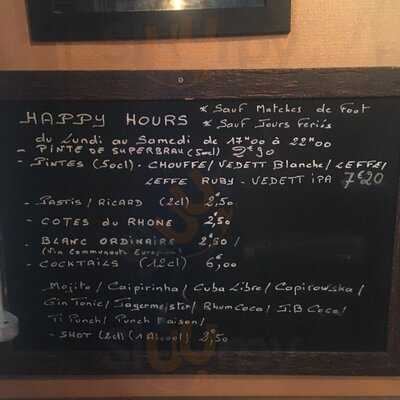 HAPPY HOURS
* Sauf Matches de Foot
* Sauf Jours Feriés
du Lundi au Samedi de 17H00 à 22H00
- PINTE DE SUPERBRAU (50cl)
- PINTES (50cl) - CHOUFFE/ VEDETT Blanche/ LEFFE/
LEFFE RUBY - VEDETT IPA 7€20
- Pastis/ RICARD (2cl) 2€,50
- COTES du RHONE 2€,50
- BLANC ORDINAIRE 2€,50 /
(Vin Communauté Européen)
- COCKTAILS (12cl) 6€,00
Mojito/ Caipirinha/ Cuba Libre/ Capirowska/
Gin Tonic/ Jagermeister/ Rhum Coca/ J.B Coca/
Ti Punch/ Punch Maison/
- SHOT (2cl) (1 Alcool) 2€,50